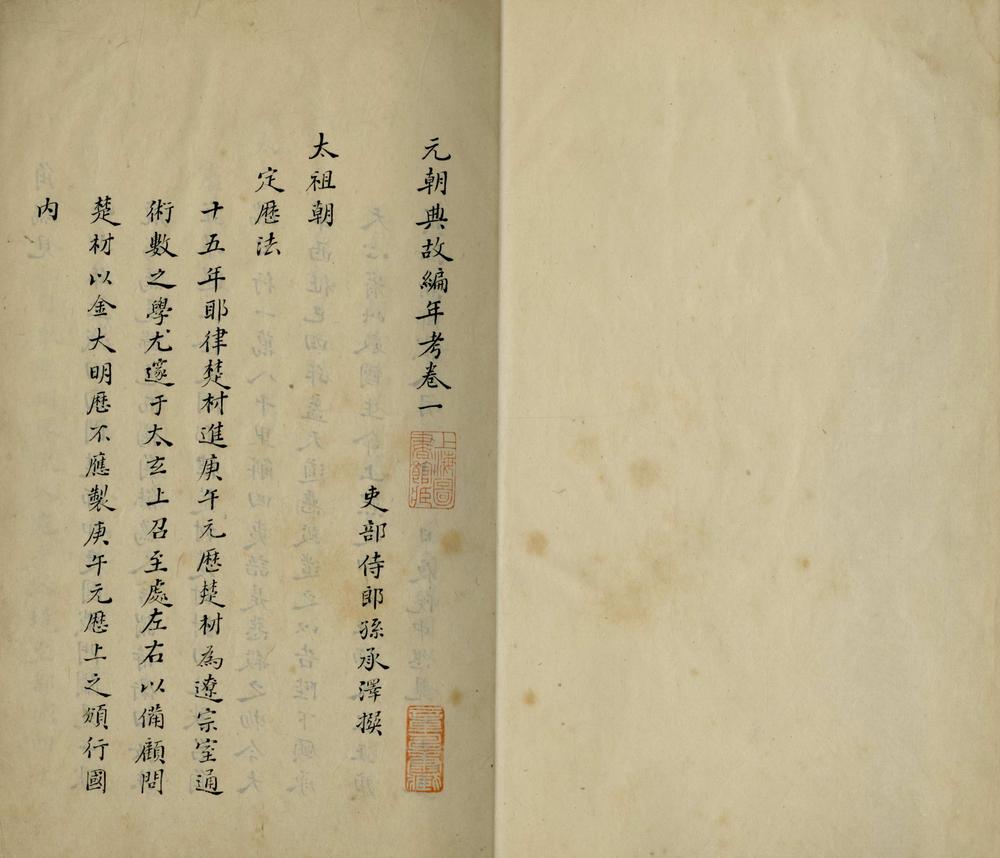 元朝典故編年考卷一
上海圖書館藏
吏部侍郎孫承澤撰
太祖朝
定歷法
十五年耶律楚材進庚午元歷楚材為遼宗室通
術數之學尤邃于太玄上召至處左右以備顧問
楚材以金大明歷不應製庚午元歷上之頒行國
内